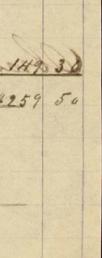 149 38
$259 50